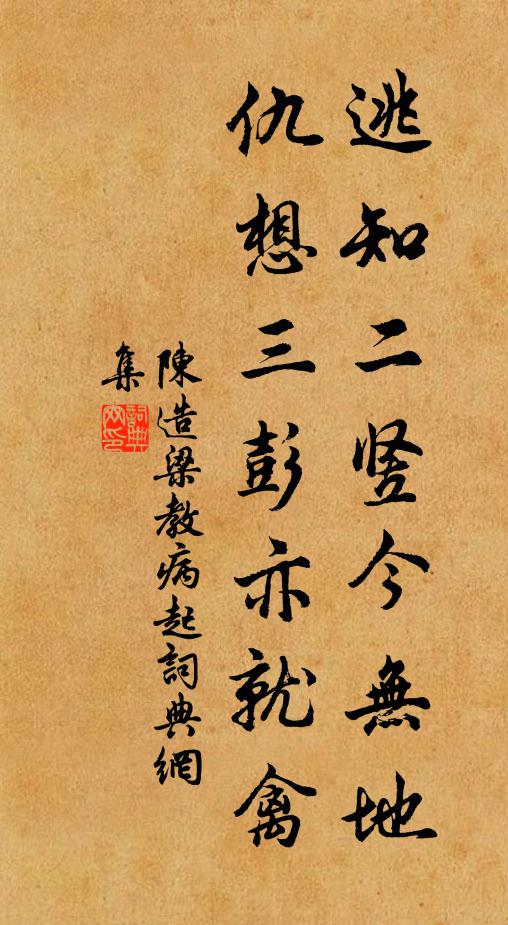 逃知二竖今無地
仇想三彭亦就禽
陳造梁教病起詞典網
集
詞典
網印